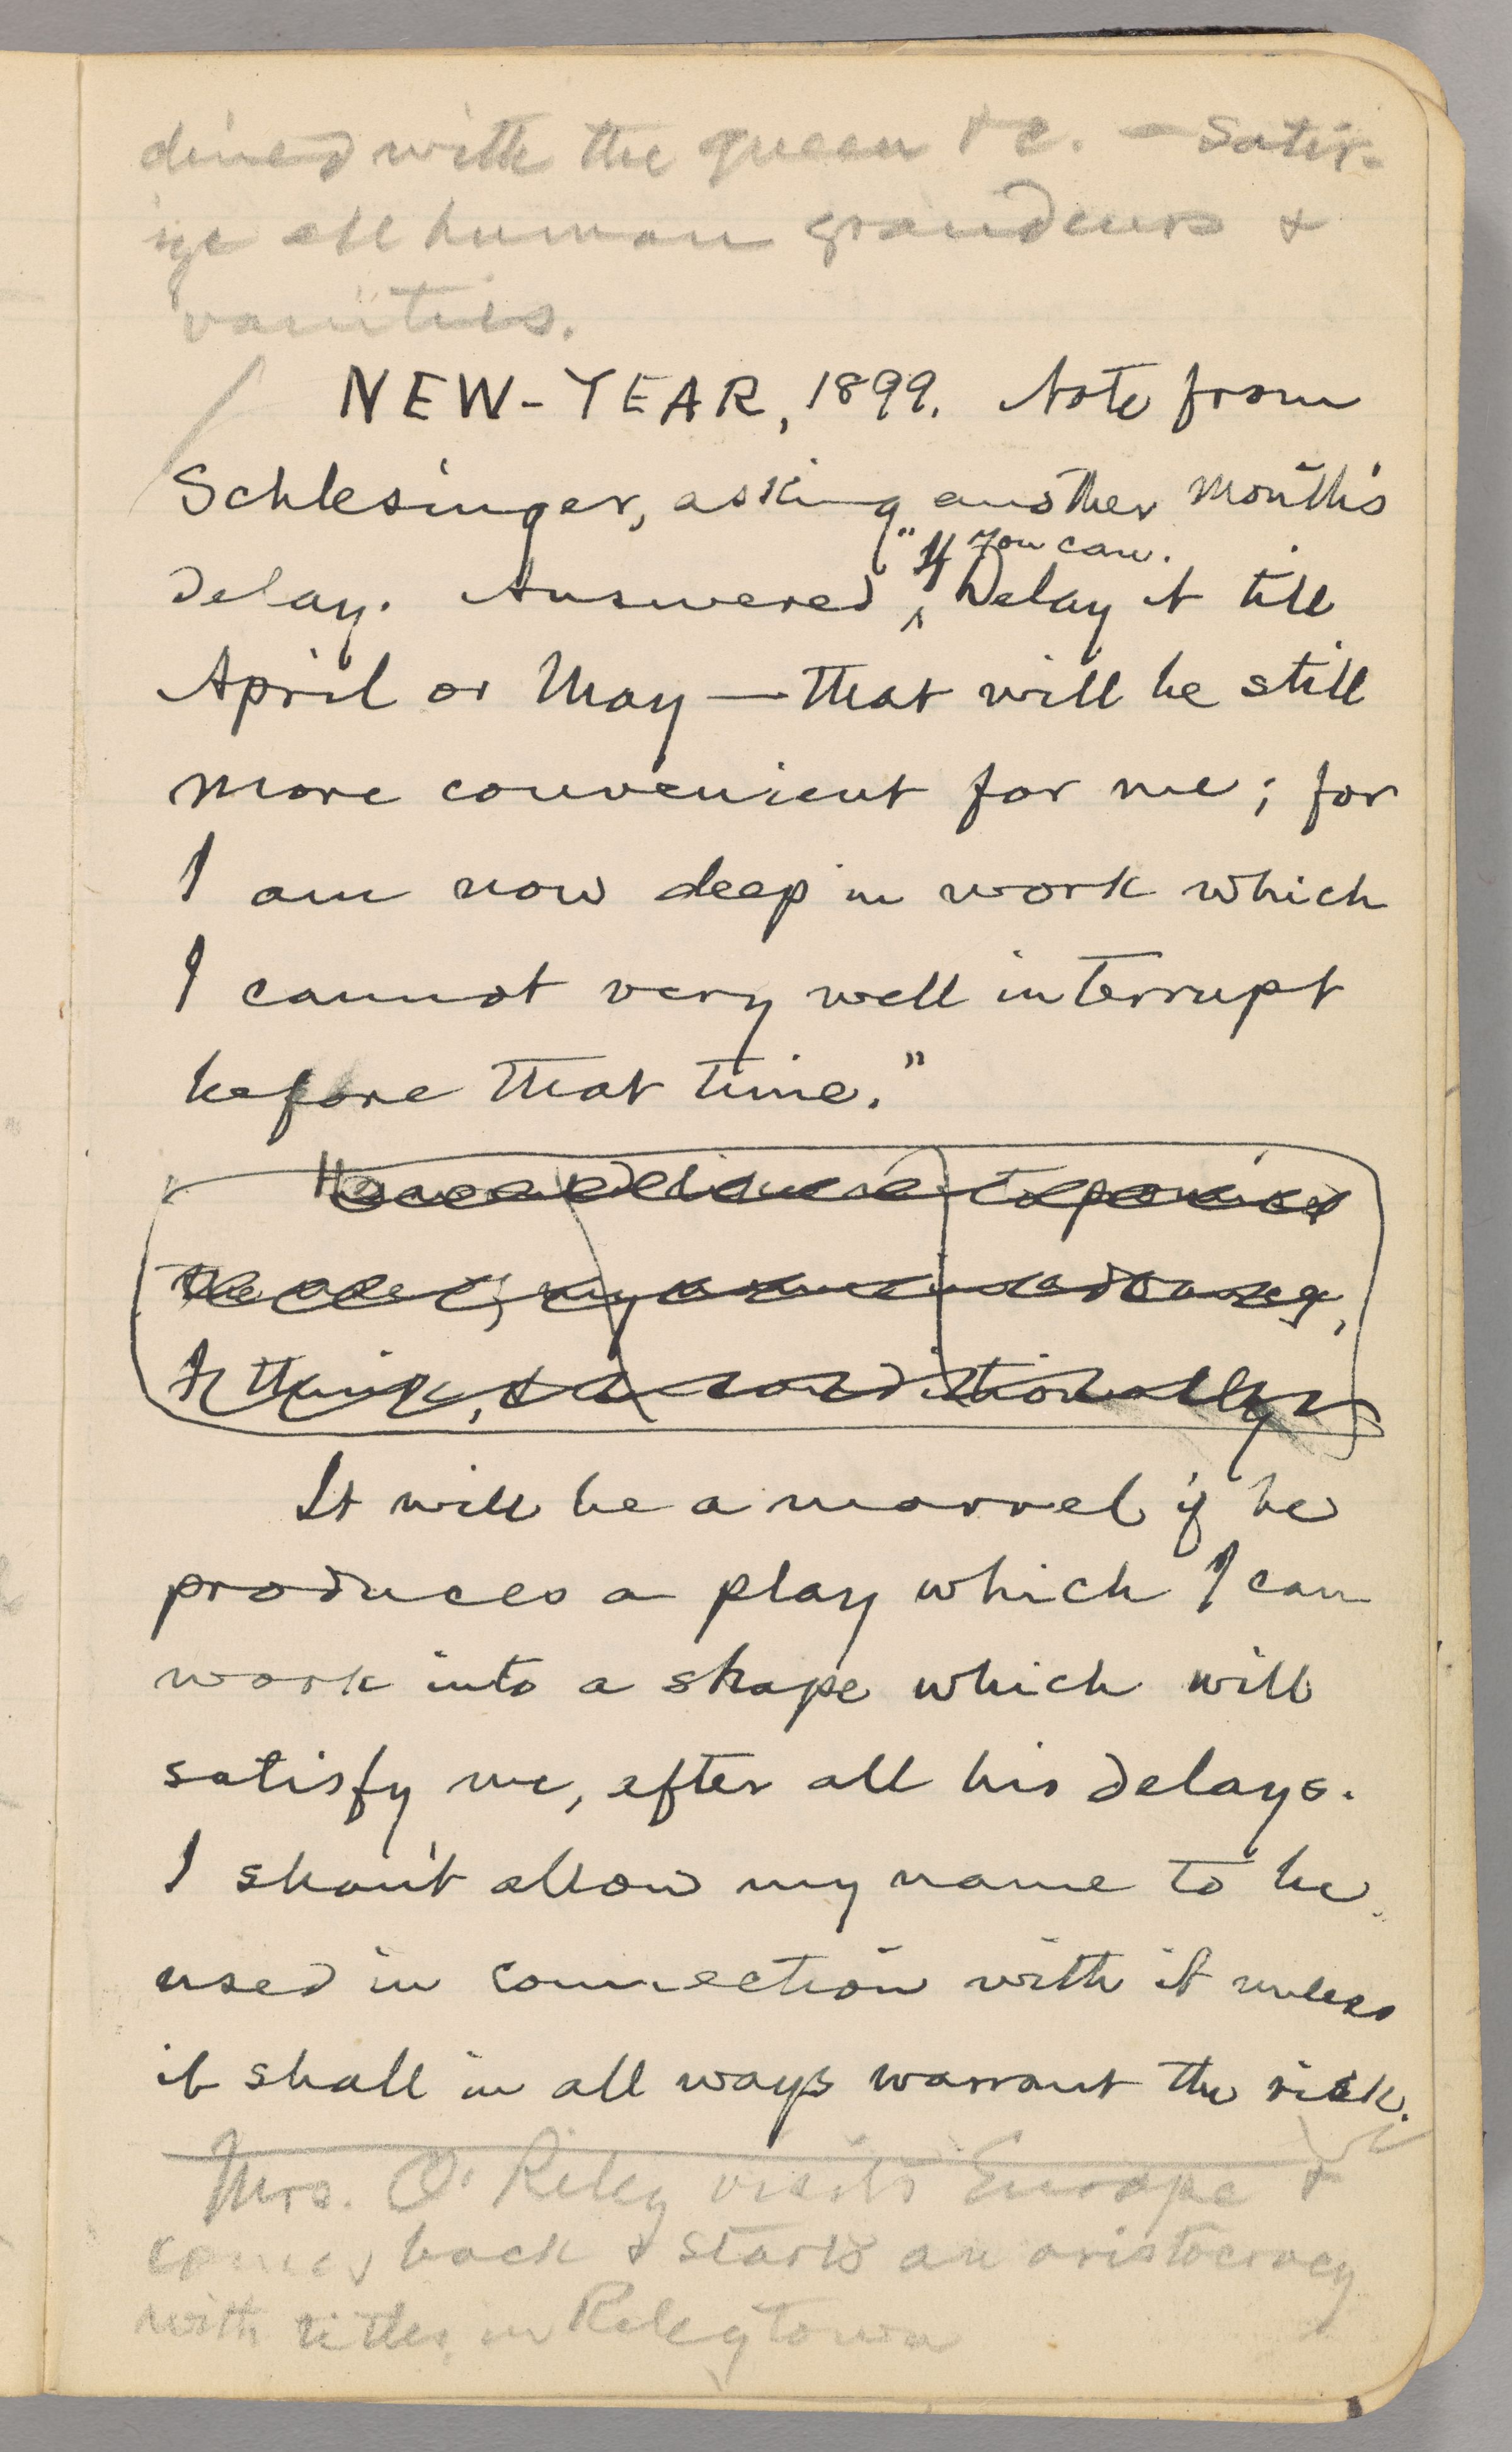 dined with the queen &c. — Satir-
ize all human grandeurs &
vanities.
NEW-YEAR, 1899. Note from
Schlesinger, asking another month's
"If you can.
delay. Answered, Delay it till
April or May — that will be still
more convenient for me; for
I am now deep in work which
I cannot very well interrupt
before that time."
I think, & unconditionally
It will be a marvel if he
produces a play which I can
work into a shape which will
satisfy me, after all his delays.
I shan't allow my name to be
used in connection with it unless
it shall in all ways warrant the risk.
Mrs. O'Riley visits Europe &
comes back & starts an aristocracy
with titles in Rileytown